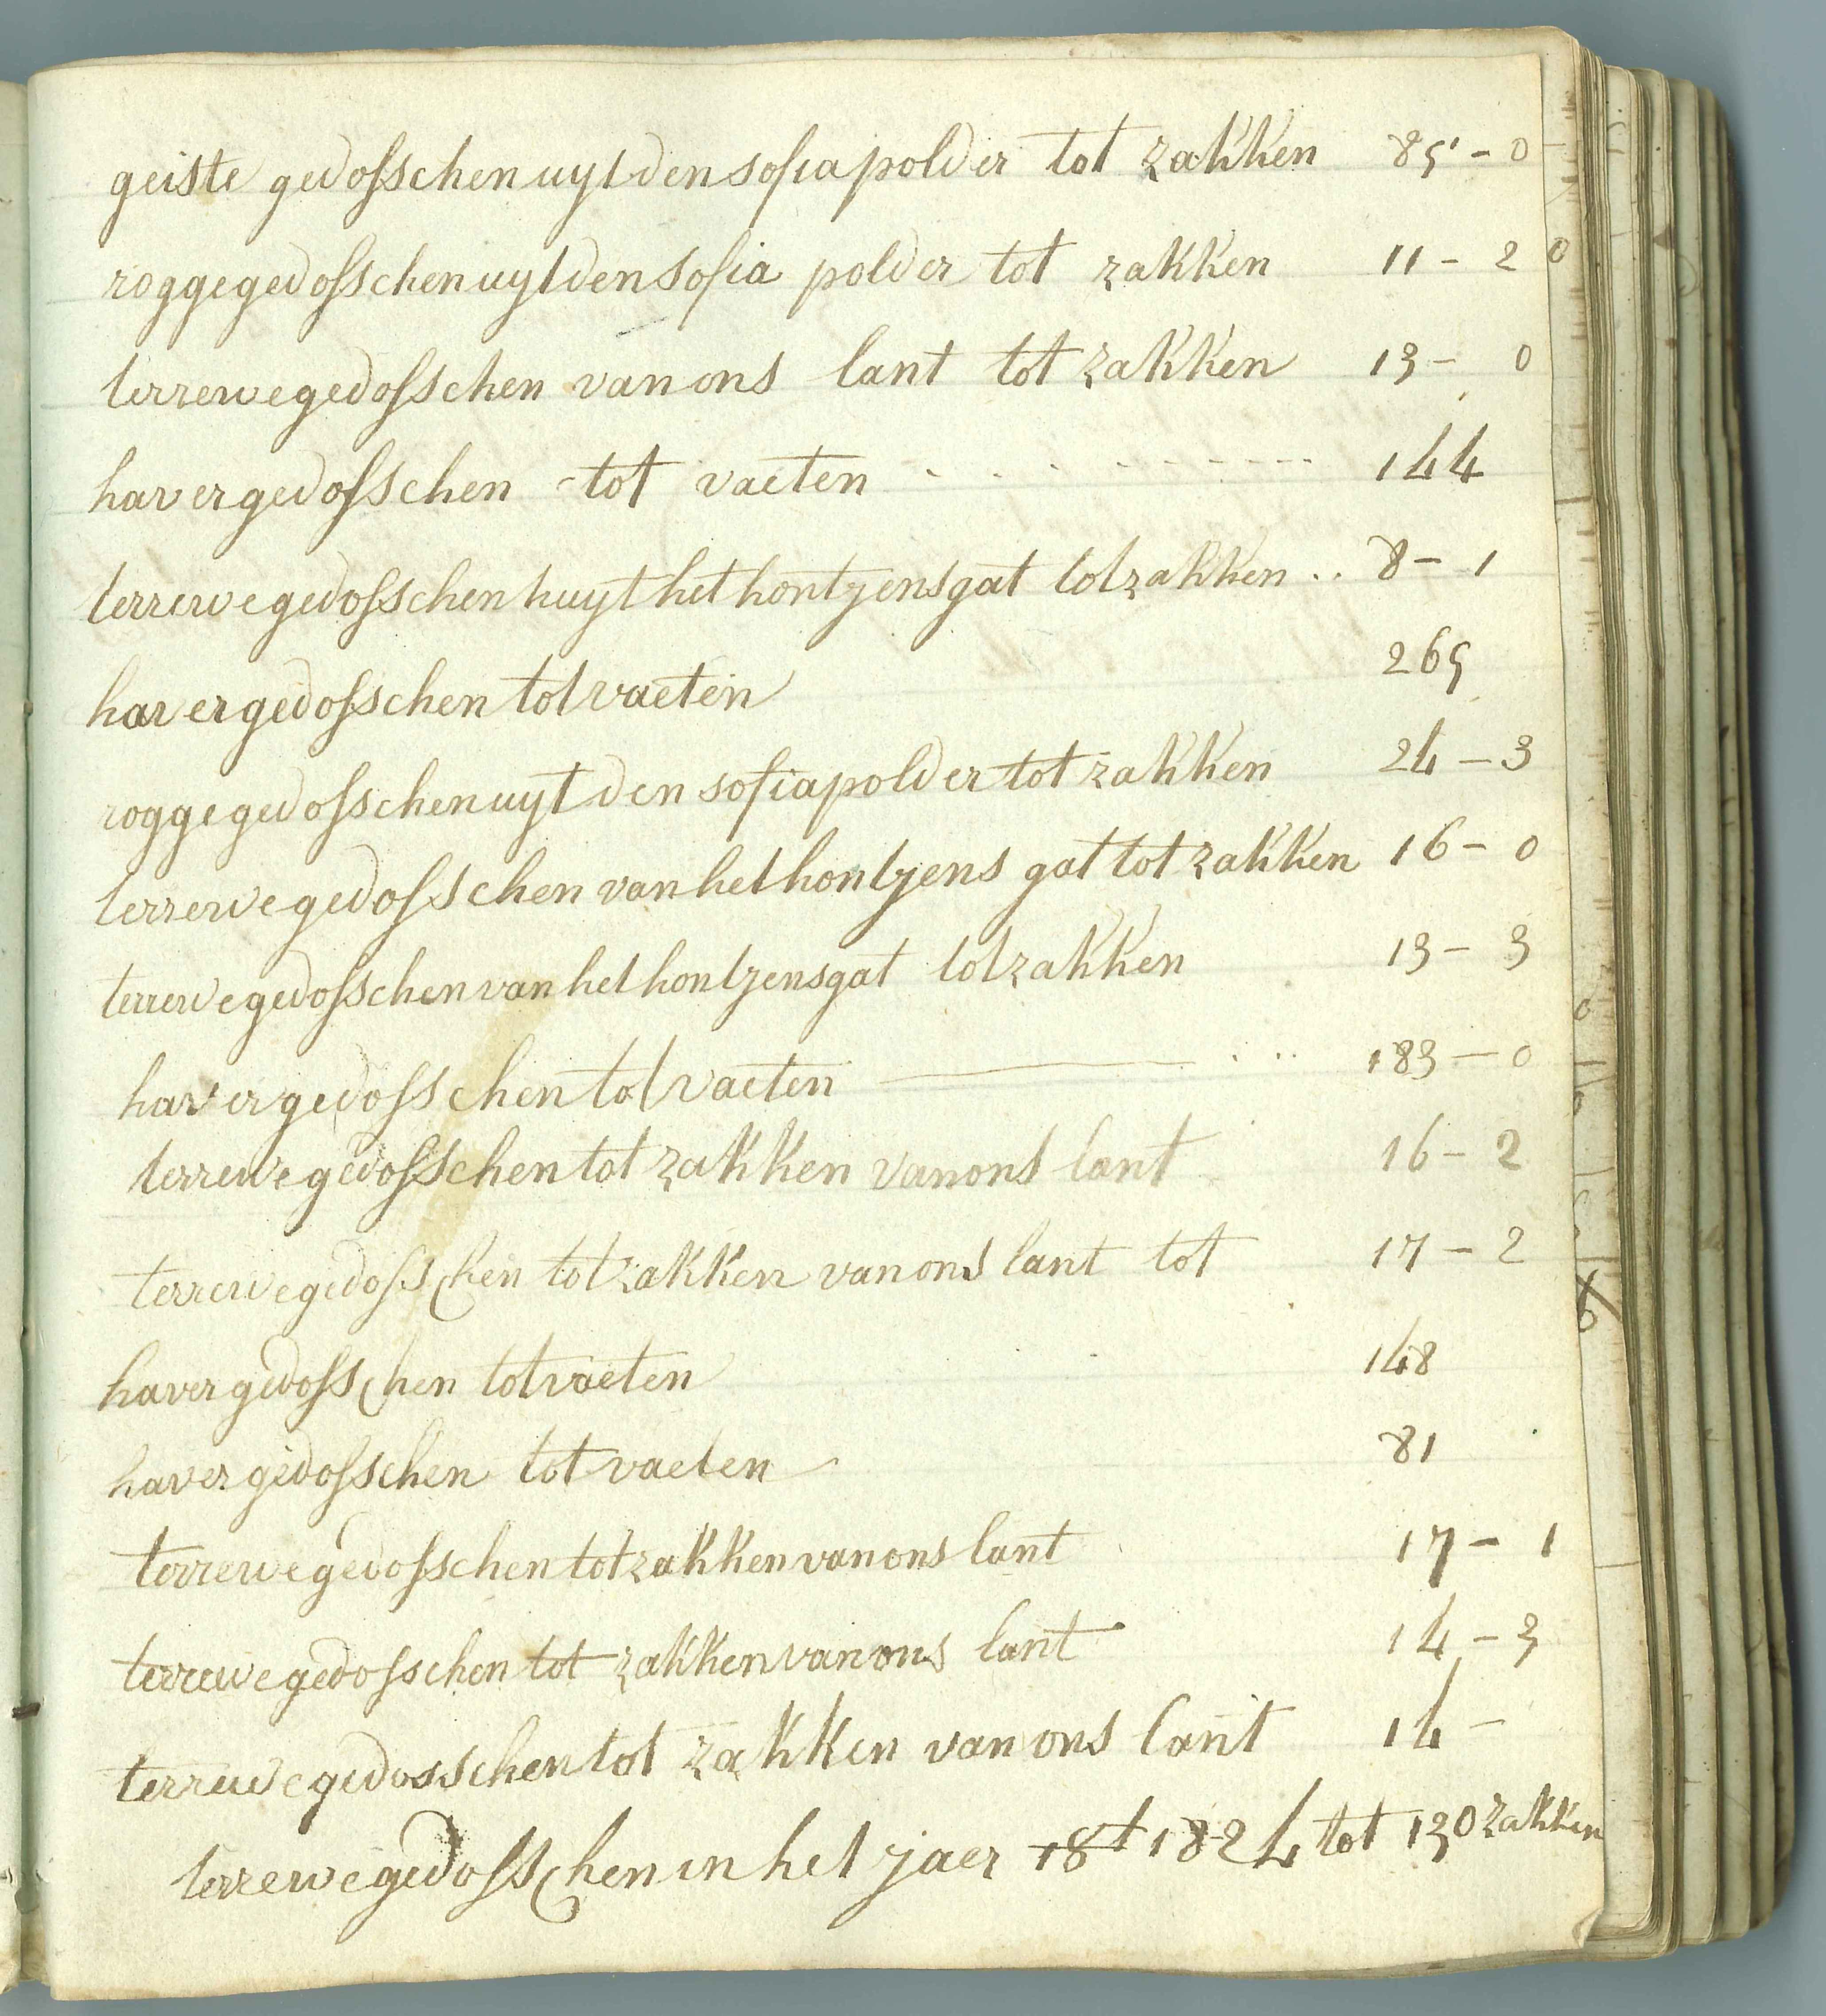 geiste gedosschen uyt den sofia polder tot zakken 85 - 0
rogge gedosschen uyt den sofia polder tot zakken 11 - 2
terrewe gedosschen van ons lant tot zakken 13 - 0
haver gedosschen - tot vaeten - - - - - - - - - 144
terrewe gedosschen huyt het hontzensgat tot zakken .. 8 - 1
haver gedosschen tot vaeten 265
rogge gedosschen uyt den sofia polder tot zakken 24 - 3
terrewe gedosschen van het hontzens gat tot zakken 16 - 0
terrewe gedosschen van het hontzensgat tot zakken 13 - 3
haver gedosschen tot vaeten ——— . .. 183 - 0
terrewe gedosschen tot zakken van ons lant 16 - 2
terrewe gedosschen tot zakken van ons lant tot 17 - 2
haver gedosschen tot vaeten 148
haver gedosschen tot vaeten 81
terrewe gedosschen tot zakken van ons lant 17 - 1
terrewe gedosschen tot zakken van ons lant 14 - 3
terrewe gedosschen tot zakken van ons lant 14 -
terrewe gedosschen in het jaer 1824 tot 130 zakken